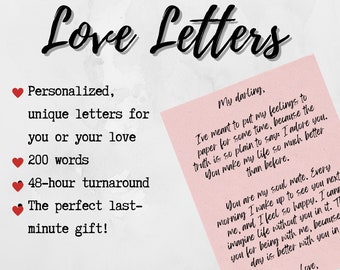 Love Letters
Personalized,
unique letters for
you or your love
200 words
48-hour turnaround
The perfect last-
minute gift!
My darling,
I've meant to put my feelings to
paper for some time, because the
truth is so plain to say: I adore you.
You make my life so much better
than before.
You are my soul mate. Every
morning I wake up to see you next
me, and I feel so happy. I cann
imagine life without you in it. Th
you for being with me, because
day is better with you in
Love,